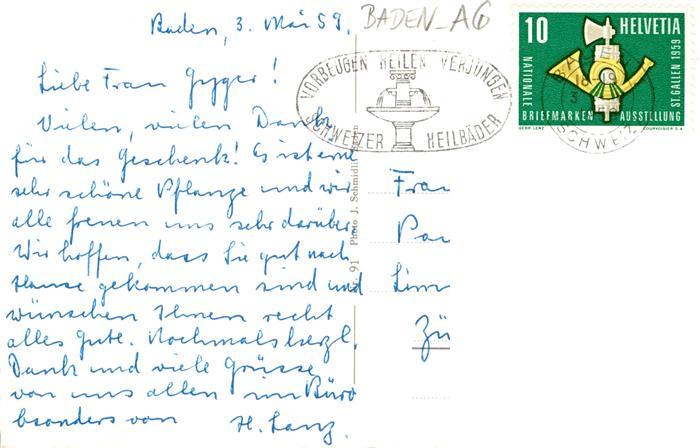 Baden, 3. Mai 59.
BADEN_AG
Liebe Frau Gyger!
Vielen, vielen Dank
für das Geschenk! Es ist eine
sehr schöne Pflanze und wir
alle freuen uns sehr darüber.
Wir hoffen, dass Sie gut nach
Hause gekommen sind und
wünschen Ihnen recht
alles Gute. Nochmals herzl.
Dank und viele Grüsse
von uns allen im Büro
besonders von H. Lanz.
VORBEUGEN HEILEN VERJÜNGEN
SCHWEIZER HEILBÄDER
10 HELVETIA
NATIONALE
BRIEFMARKEN AUSSTELLUNG
ST. GALLEN 1959
GEBR. LENZ COURVOISIER S.A.
SCHWEIZ
91 Photo J. Schmidli
Frau
Zü